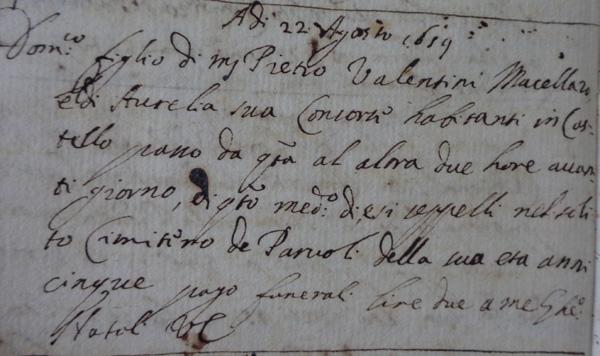 Adi 22 Agosto 1659
Dom.co figlio di m Pietro Valentini Macellaro
e di Aurelia sua Consorte habitanti in Cas-
tello passò da q.ta al altra due hore avan-
ti giorno, di q.to med.o di, e si seppelli nel soli
to Cimiterio de Parvoli della sua età anni
cinque pago funerali lire due a me
Natali